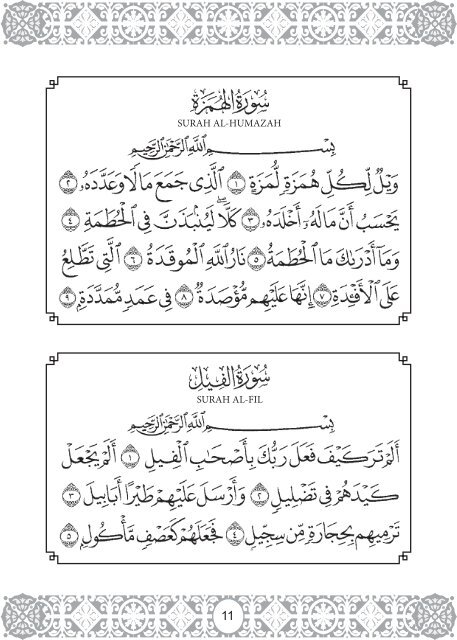 سُورَةُ الْهُمَزَةِ
SURAH AL-HUMAZAH
بِسْمِ اللَّهِ الرَّحْمَٰنِ الرَّحِيمِ
وَيْلٌ لِّكُلِّ هُمَزَةٍ لُّمَزَةٍ ١ الَّذِي جَمَعَ مَالًا وَعَدَّدَهُ ٢
يَحْسَبُ أَنَّ مَالَهُ أَخْلَدَهُ ٣ كَلَّا ۖ لَيُنبَذَنَّ فِي الْحُطَمَةِ ٤
وَمَا أَدْرَىٰكَ مَا الْحُطَمَةُ ٥ نَارُ اللَّهِ الْمُوقَدَةُ ٦ الَّتِي تَطَّلِعُ
عَلَى الْأَفْـِٔدَةِ ٧ إِنَّهَا عَلَيْهِم مُّؤْصَدَةٌ ٨ فِي عَمَدٍ مُّمَدَّدَةٍ ٩
سُورَةُ الْفِيلِ
SURAH AL-FIL
بِسْمِ اللَّهِ الرَّحْمَٰنِ الرَّحِيمِ
أَلَمْ تَرَ كَيْفَ فَعَلَ رَبُّكَ بِأَصْحَٰبِ الْفِيلِ ١ أَلَمْ يَجْعَلْ
كَيْدَهُمْ فِي تَضْلِيلٍ ٢ وَأَرْسَلَ عَلَيْهِمْ طَيْرًا أَبَابِيلَ ٣
تَرْمِيهِم بِحِجَارَةٍ مِّن سِجِّيلٍ ٤ فَجَعَلَهُمْ كَعَصْفٍ مَّأْكُولٍ ٥
11